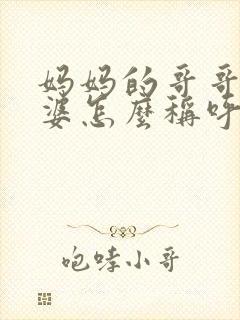 妈妈的哥哥
婆怎麼稱呼
咆哮小哥